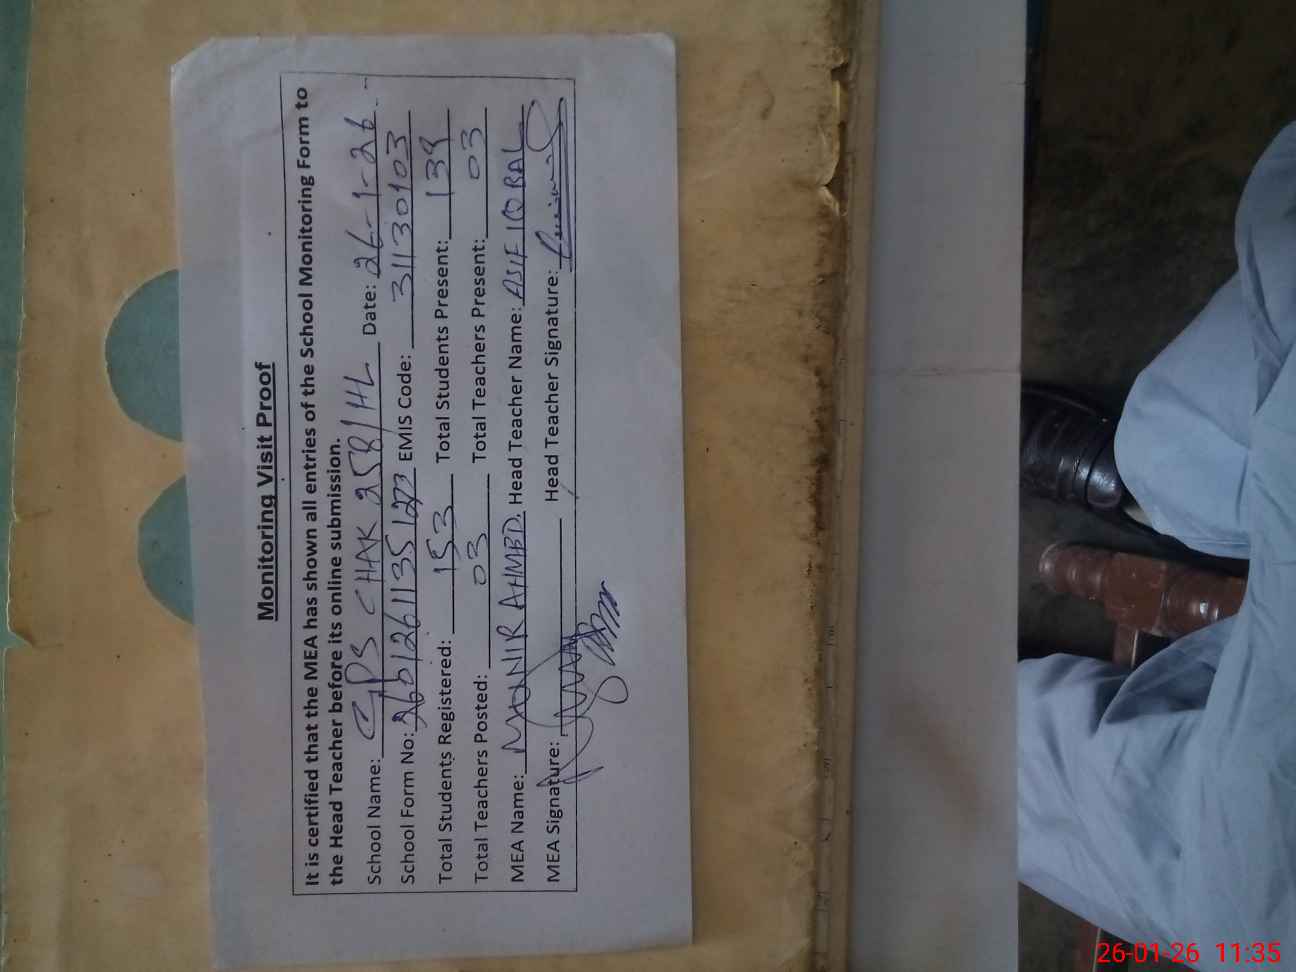 Monitoring Visit Proof
It is certified that the MEA has shown all entries of the School Monitoring Form to
the Head Teacher before its online submission.
School Name: GPS CHAK 258/HL Date: 26-1-26
School Form No: 26012611351273 EMIS Code: 31130103
Total Students Registered: 153 Total Students Present: 139
Total Teachers Posted: 03 Total Teachers Present: 03
MEA Name: MUNIR AHMED. Head Teacher Name: ASIF IQBAL
MEA Signature: Head Teacher Signature:
26-01-26 11:35